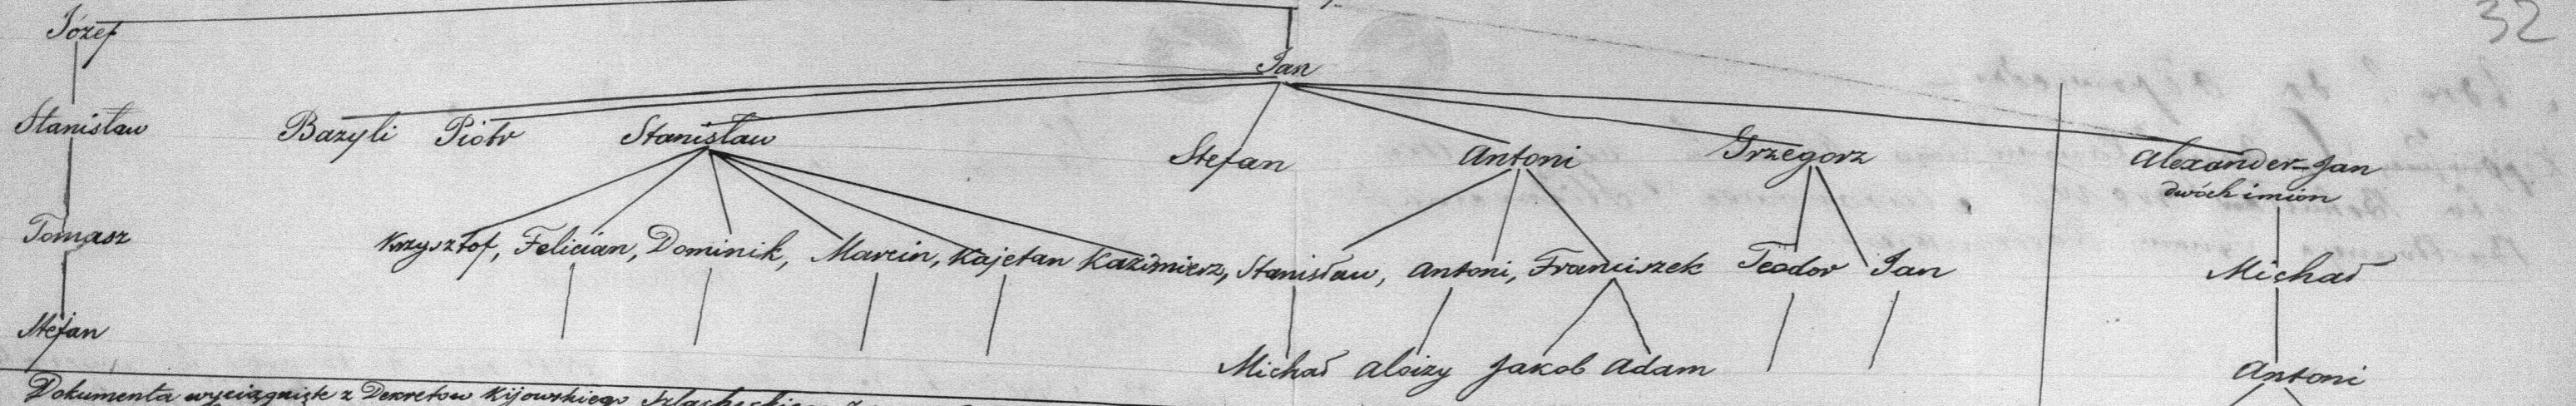 32
Józef
Jan
Stanisław Bazyli Piotr Stanisław Stefan Antoni Grzegorz Alexander-Jan
dwóch imion
Tomasz Krzysztof, Felician, Dominik, Marcin, Kajetan Kazimierz, Stanisław, Antoni, Franciszek Teodor Jan Michał
Stefan Michał Aloizy Jakob Adam Antoni
Dokumenta wyciągnięte z Dekretow Kijowskiego